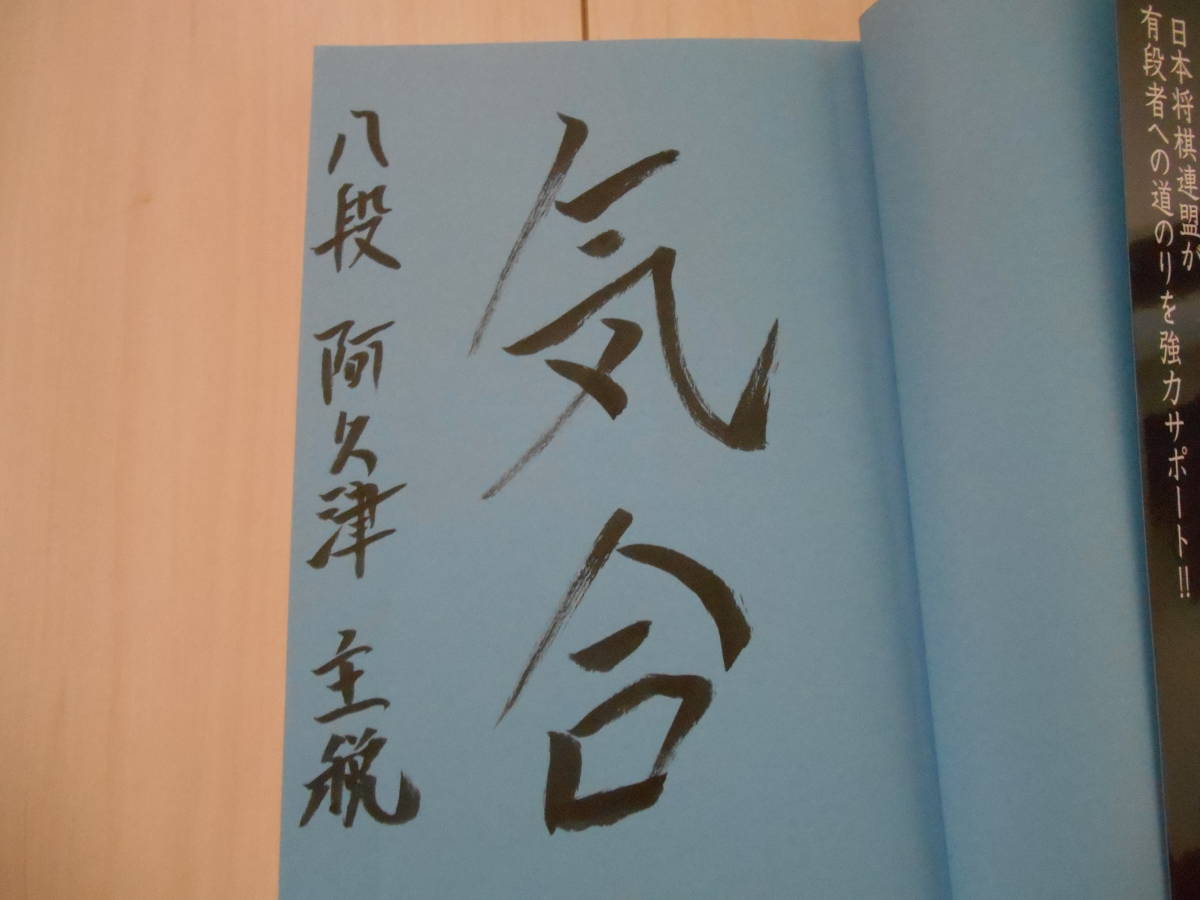 日本将棋連盟が
有段者への道のりを強力サポート!!
気合
八段 阿久津 主税